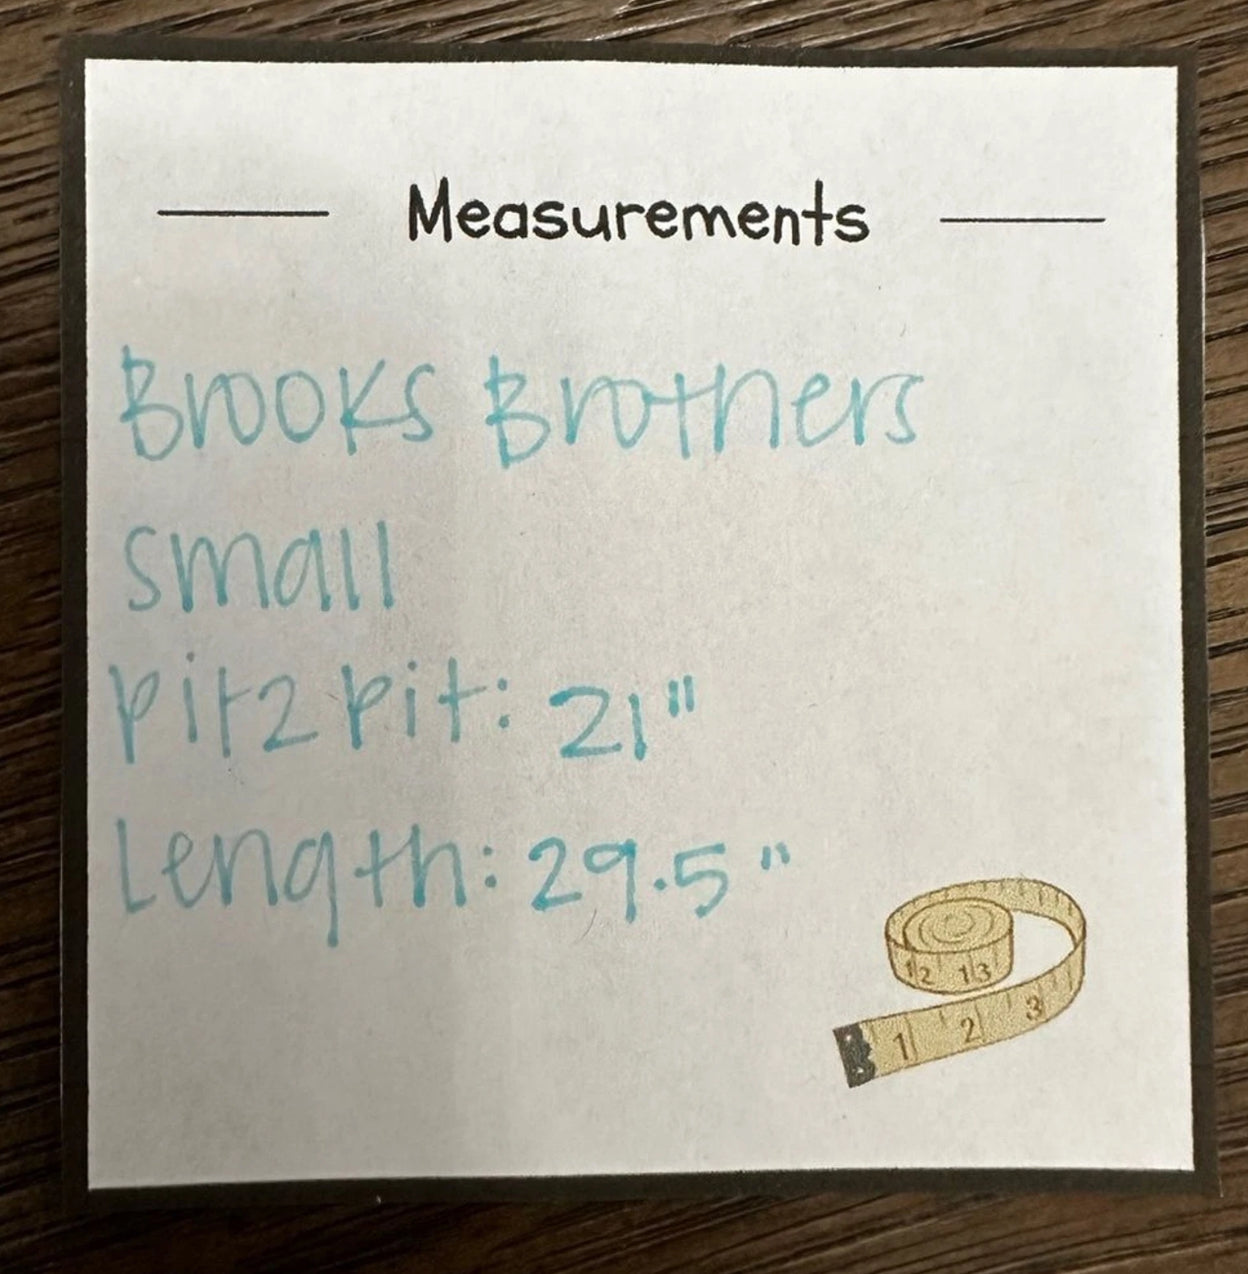 Measurements
Brooks Brothers
small
pit2pit: 21"
Length: 29.5"
12 13
1 2 3